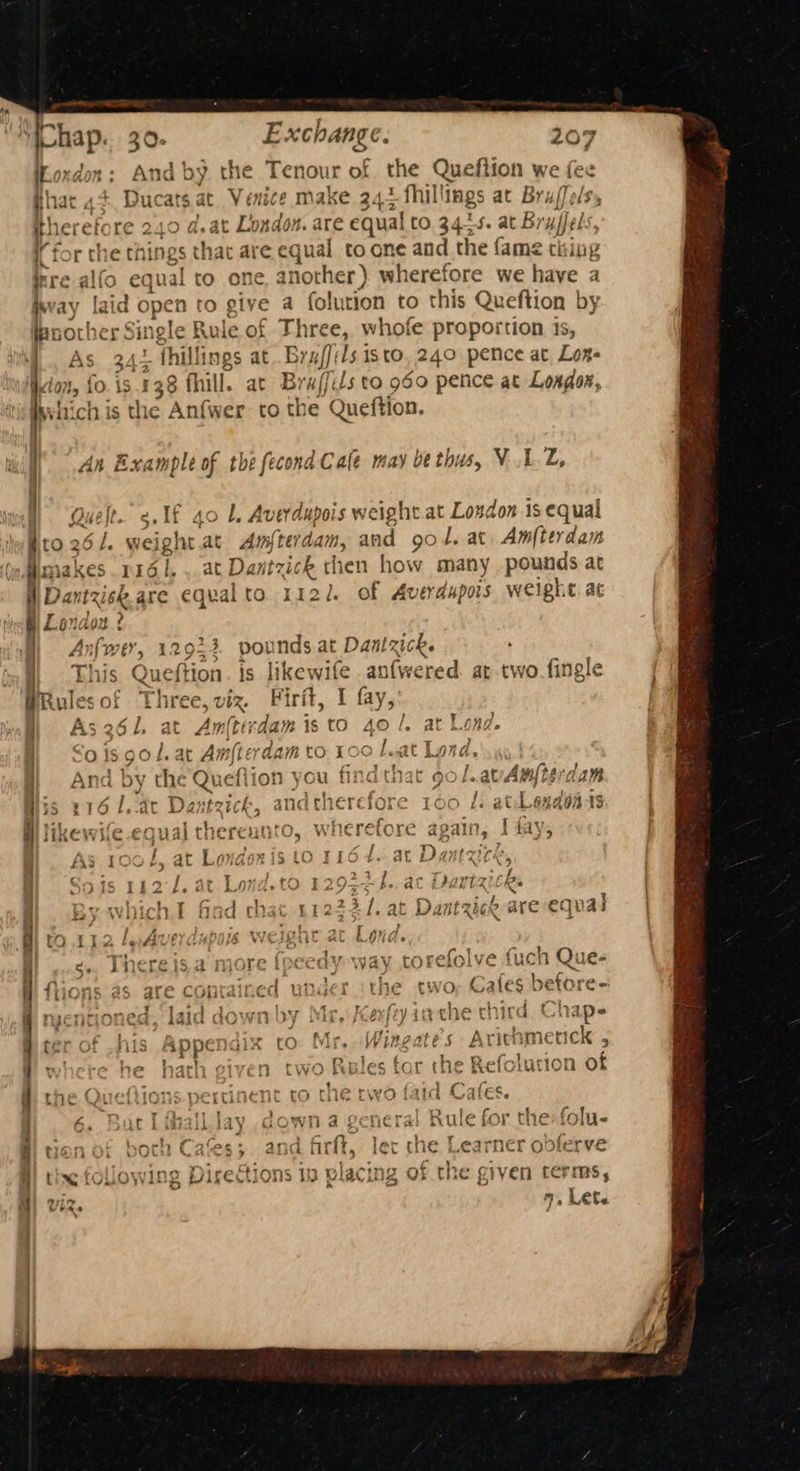 Chap. 30. Exchange. 207
London: And by the Tenour of the Queſtion we ſee
that 4 Ducats at Venice make 34½ ſhillings at Bruſſels,
therefore 240 d. at London. are equal to 34½s. at Bruſſels,
(for the things that are equal to one and the ſame thing
are alſo equal to one another) wherefore we have a
way laid open to give a ſolution to this Queſtion by
another Single Rule of Three, whoſe proportion is,
As 34½ ſhillings at Bruſſels is to 240 pence at Lon-
don, ſo is 138 ſhill. at Bruſſels to 960 pence at London,
which is the Anſwer to the Queſtion.
An Example of the ſecond Caſe may be thus, V I Z,
Queſt. 5. If 40 l. Averdupois weight at London is equal
to 36 l. weight at Amſterdam, and 90 l. at Amſterdam
makes 116 l. at Dantzick then how many pounds at
Dantzick are equal to 112 l. of Averdupois weight at
London ?
Anſwer, 129 pounds at Dantzick.
This Queſtion is likewiſe anſwered at two ſingle
Rules of Three, viz. Firſt, I ſay,
As 36 l. at Amſterdam is to 40 l. at Lond.
So is 90 l. at Amſterdam to 100 l. at Lond.
And by the Queſtion you find that 90 l. at Amſterdam
is 116 l. at Dantzick, and therefore 100 l. at London is
likewiſe equal thereunto, wherefore again, I ſay,
As 100 l, at London is to 116 l. at Dantzick,
So is 112 l. at Lond. to 129 l. at Dantzick.
By which I find that l. at Dantzick are equal
to 112 l. Averdupois weight at Lond.
5. There is a more ſpeedy way to reſolve ſuch Que-
ſtions as are contained under the two Caſes before-
mentioned, laid down by Mr. Kerſey in the third Chap-
ter of his Appendix to Mr. Wingate's Arithmetick,
where he hath given two Rules for the Reſolution of
the Queſtions pertinent to the two ſaid Caſes.
6. But I ſhall lay down a general Rule for the ſolu-
tion of both Caſes; and firſt, let the Learner obſerve
the following Directions in placing of the given terms,
viz. 7. Let.